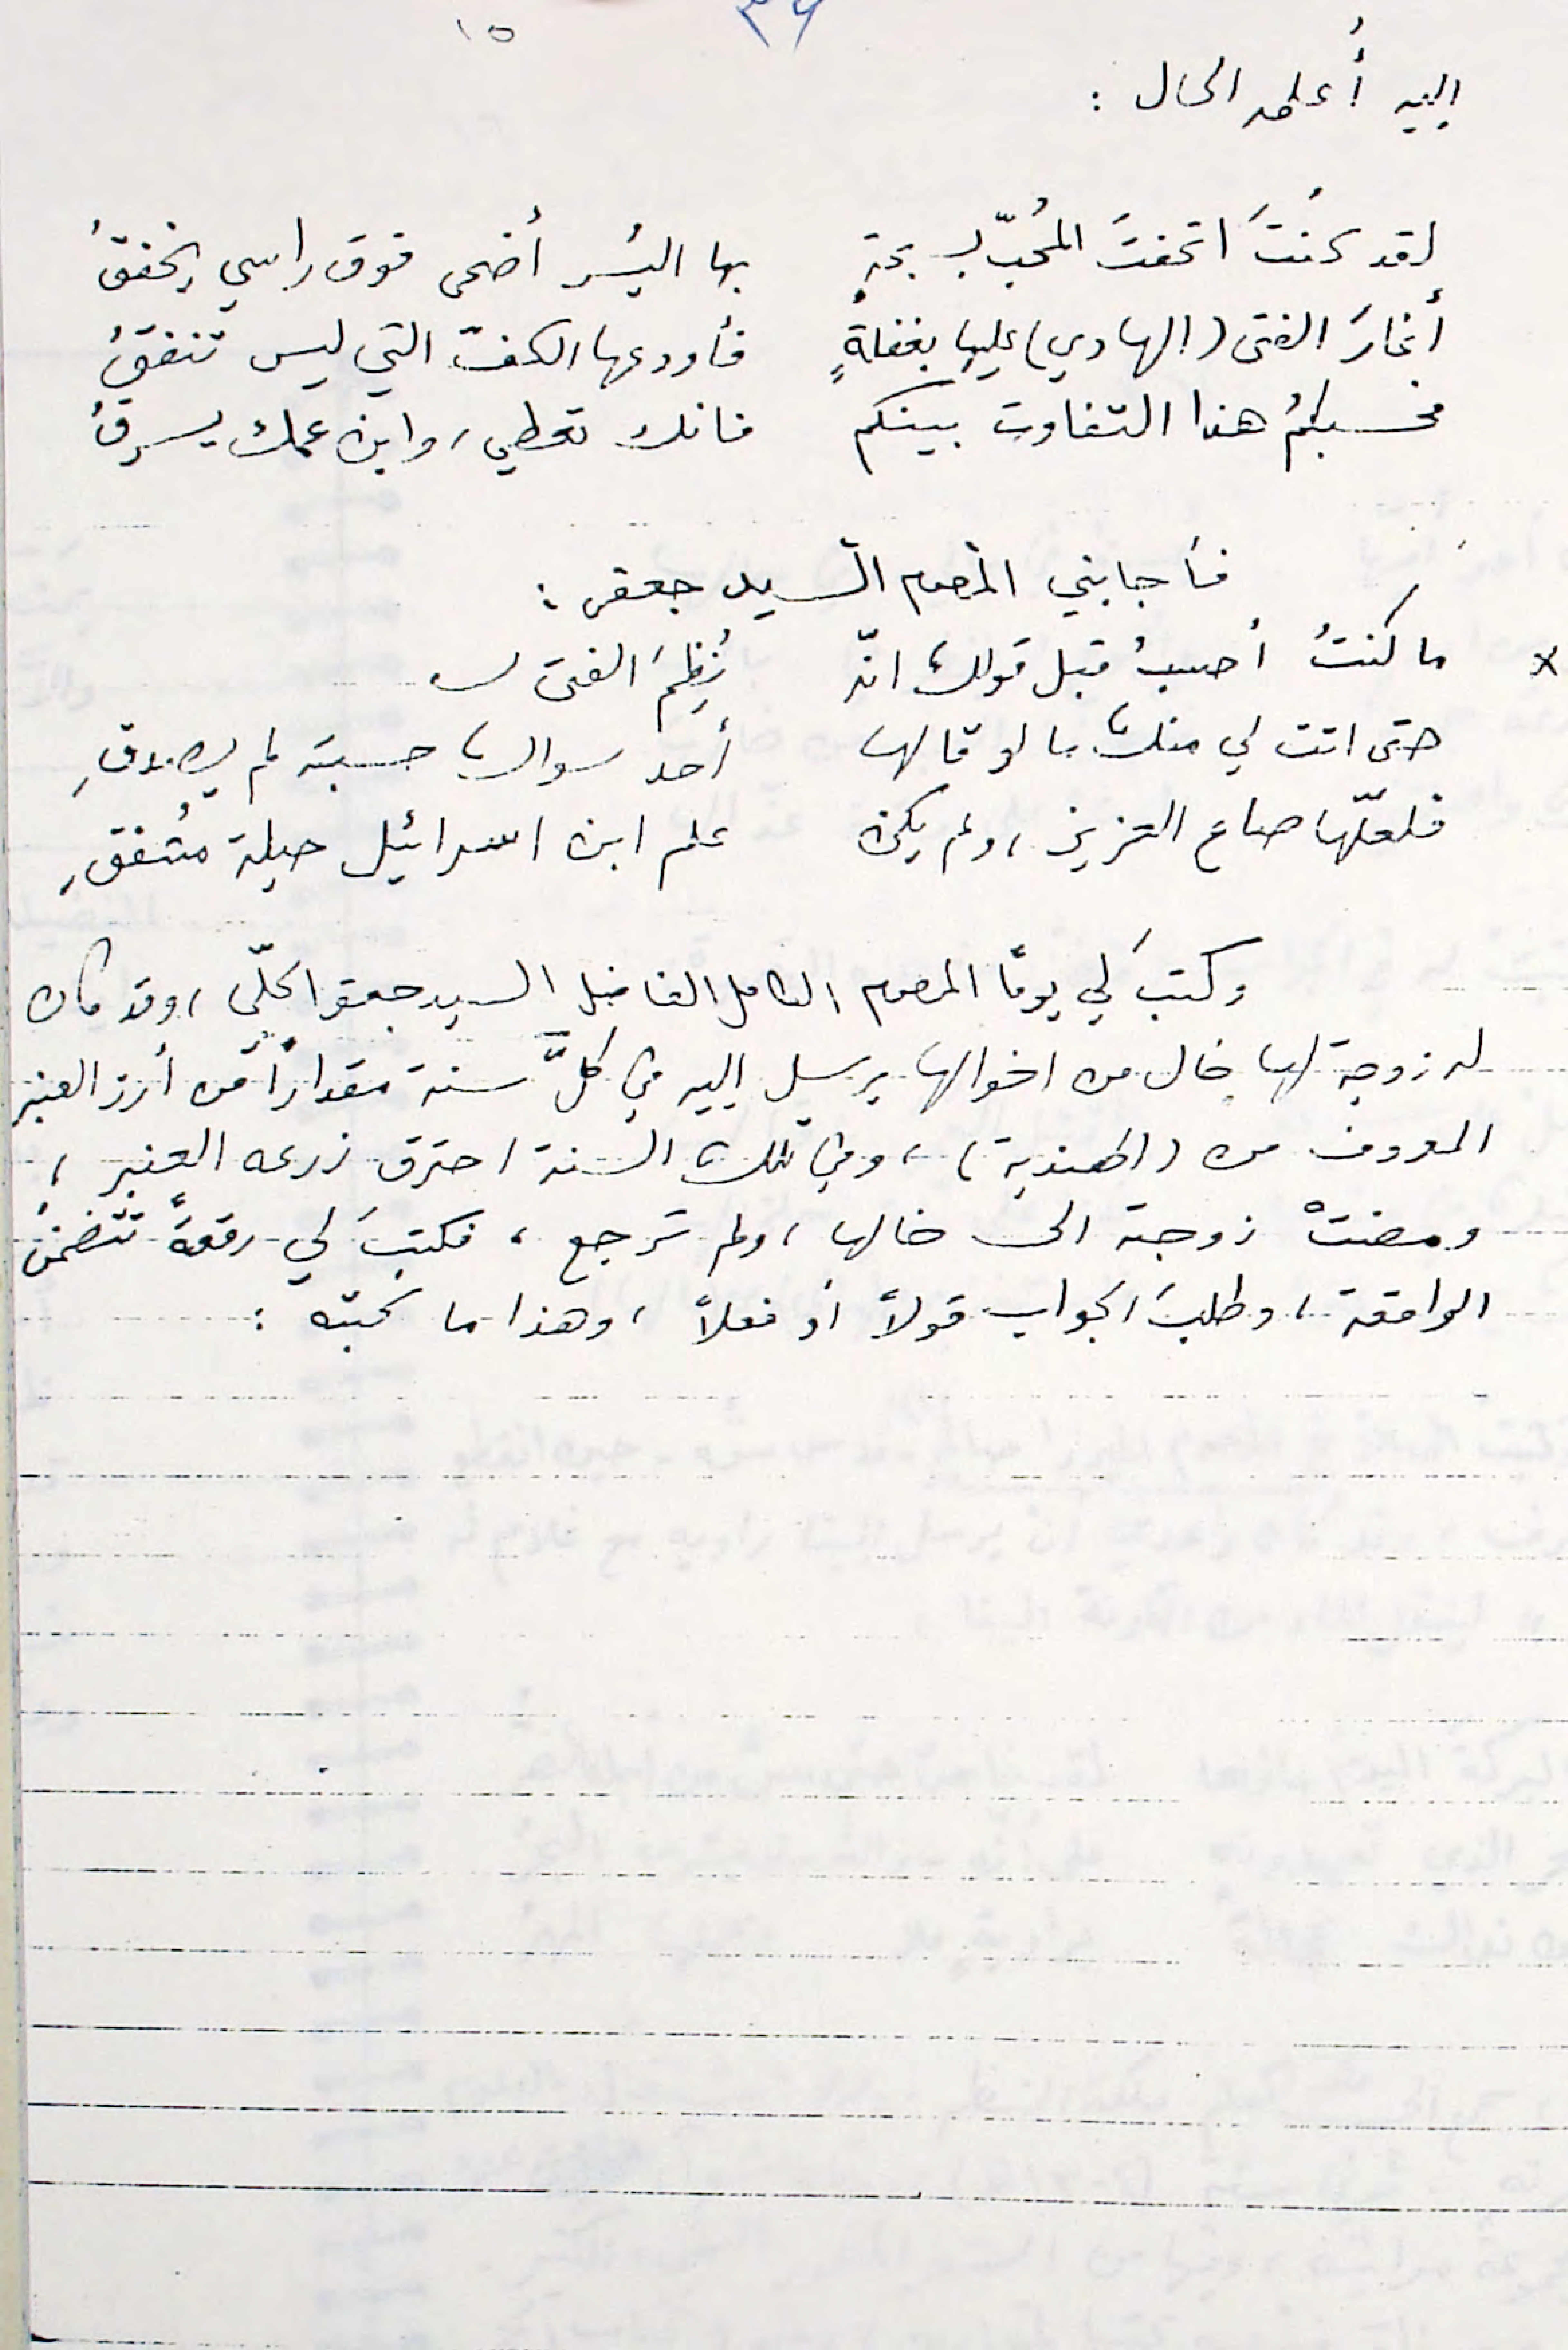 ١٥ ٣٩
إليه أُعلمه الحال :
لقد كُنتَ اتحفتَ المُحبّ بـ بجةٍ بها اليُسر أضحى فوق راسي يخفقُ
أغارَ الفتى (الهادي) عليها بغفلةٍ فأودعها الكفّ التي ليس تنفقُ
فحسبكمُ هذا التفاوت بينكم فانك تعطي، وابن عمك يسرقُ
فأجابني المرحوم السيد جعفر :
× ما كنتُ أحسبُ قبل قولك انّ نُظِمَ الفتى لـ
حتى اتت لي منك ما لو قالها أحد سواك حسبته لم يصدقِ
فلعلّها صاع العزيز، ولم يكن علم ابن اسرائيل حيلة مُشفقِ
وكتبَ لي يومًا المرحوم الكامل الفاضل السيد جعفر الحلّي، وقد كان
له زوجة لها خال من اخوالها يرسل إليه في كلِّ سنة مقداراً من أرز العنبر
المعروف من (الهندية)، وفي تلك السنة احترق زرعه العنبر،
ومضتْ زوجته الى خالها، ولم ترجع، فكتبَ لي رقعةً تتضمنُ
الواقعة، وطلبَ الجواب قولاً أو فعلاً، وهذا ما كتبته :